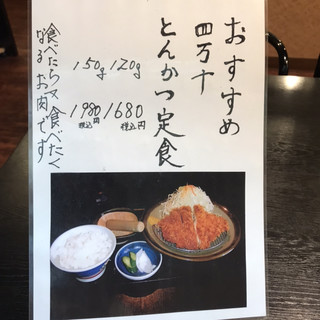 おすすめ
四万十
とんかつ定食
120g
1680円
税込
150g
1980円
税込
食べたら又食べたく
なる お肉です